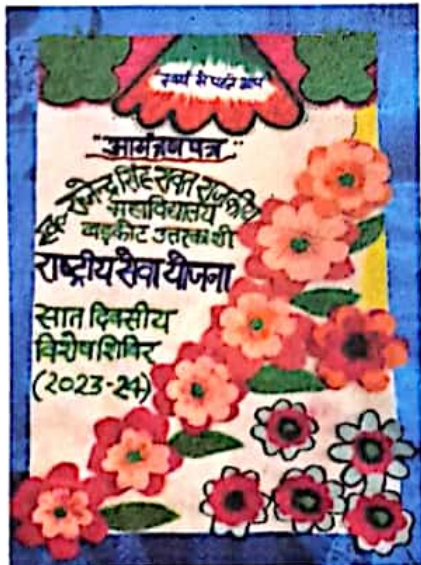 "स्वयं से पहले आप"
"आमंत्रण पत्र"
स्व. राजेन्द्र सिंह रावत राजकीय
महाविद्यालय
बड़कोट उत्तरकाशी
राष्ट्रीय सेवा योजना
सात दिवसीय
विशेष शिविर
(2023-24)